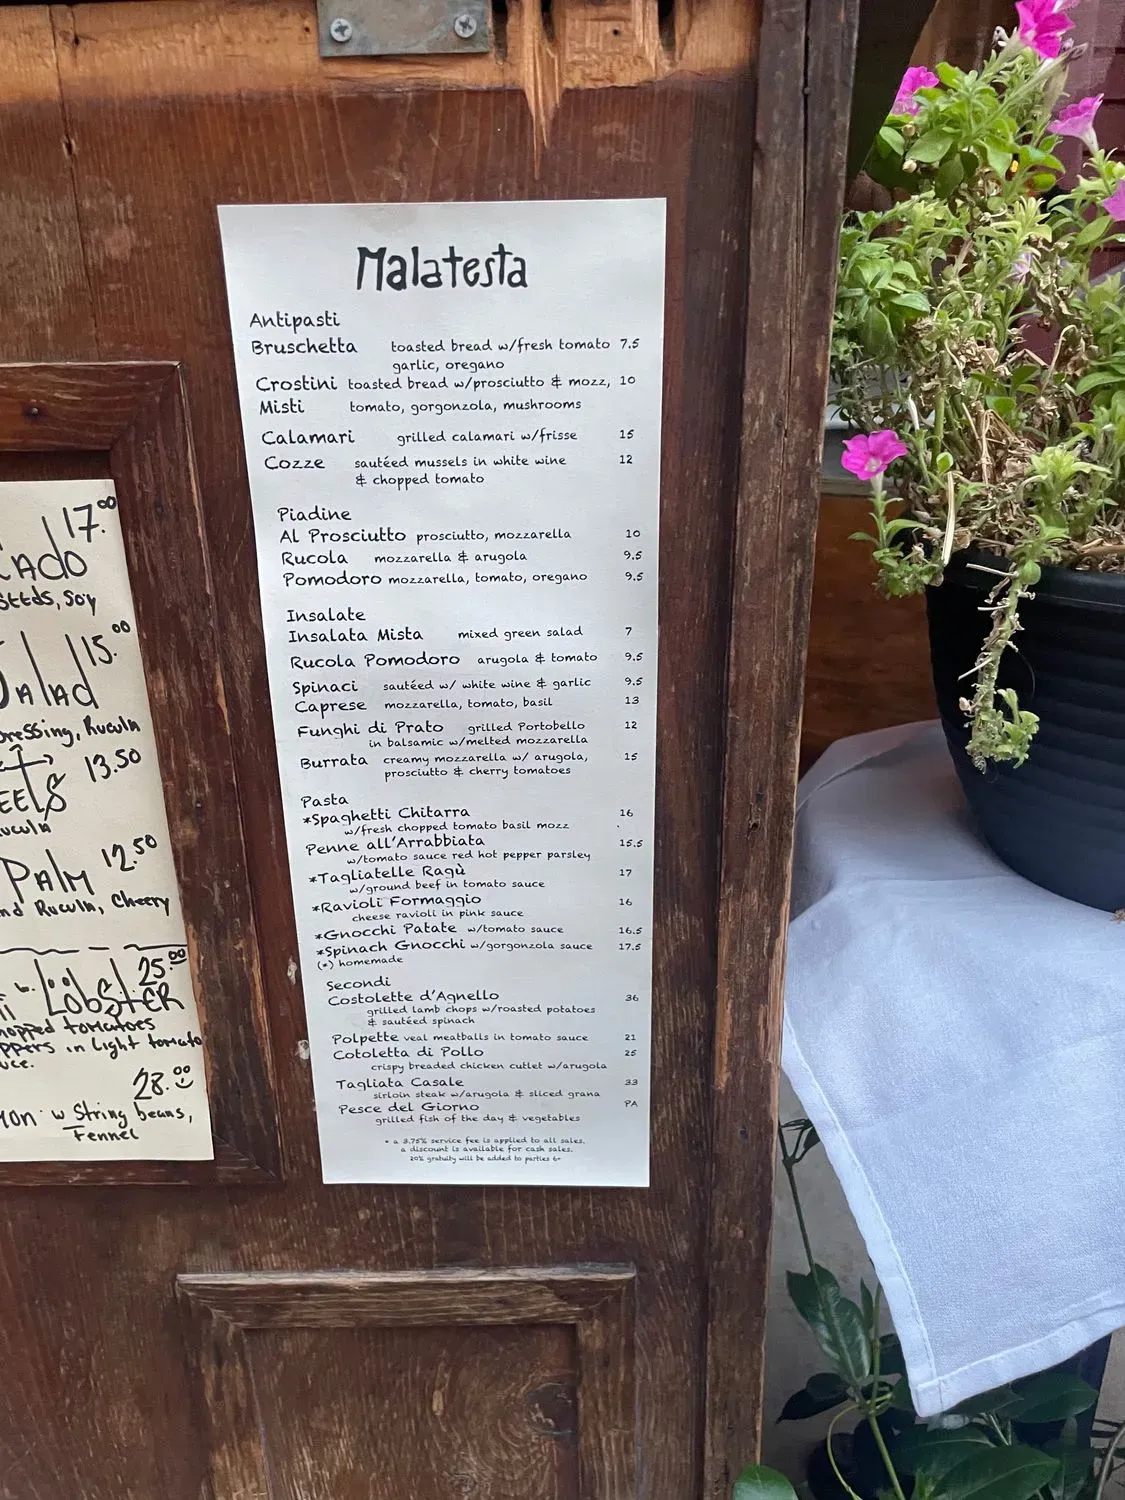 Malatesta
Antipasti
Bruschetta toasted bread w/fresh tomato 7.5
garlic, oregano
Crostini toasted bread w/prosciutto & mozz, 10
Misti tomato, gorgonzola, mushrooms
Calamari grilled calamari w/frisse 15
Cozze sautéed mussels in white wine 12
& chopped tomato
Piadine
Al Prosciutto prosciutto, mozzarella 10
Rucola mozzarella & arugola 9.5
Pomodoro mozzarella, tomato, oregano 9.5
Insalate
Insalata Mista mixed green salad 7
Rucola Pomodoro arugola & tomato 9.5
Spinaci sautéed w/ white wine & garlic 9.5
Caprese mozzarella, tomato, basil 13
Funghi di Prato grilled Portobello 12
in balsamic w/melted mozzarella
Burrata creamy mozzarella w/ arugola, 15
prosciutto & cherry tomatoes
Pasta
*Spaghetti Chitarra 16
w/fresh chopped tomato basil mozz
Penne all'Arrabbiata 15.5
w/tomato sauce red hot pepper parsley
*Tagliatelle Ragù 17
w/ground beef in tomato sauce
*Ravioli Formaggio 16
cheese ravioli in pink sauce
*Gnocchi Patate w/tomato sauce 16.5
*Spinach Gnocchi w/gorgonzola sauce 17.5
(*) homemade
Secondi
Costolette d'Agnello 36
grilled lamb chops w/roasted potatoes
& sautéed spinach
Polpette veal meatballs in tomato sauce 21
Cotoletta di Pollo 25
crispy breaded chicken cutlet w/arugola
Tagliata Casale 33
sirloin steak w/arugola & sliced grana
Pesce del Giorno PA
grilled fish of the day & vegetables
* a 3.75% service fee is applied to all sales.
a discount is available for cash sales.
20% gratuity will be added to parties 6+
17.00
Seeds, Soy
15.00
Salad
Dressing, Rucula
13.50
Rucula
12.50
Palm
Rucula, Cheery
25.00
Lobster
tomatoes
in light tomato
28.00
w String beans,
Fennel